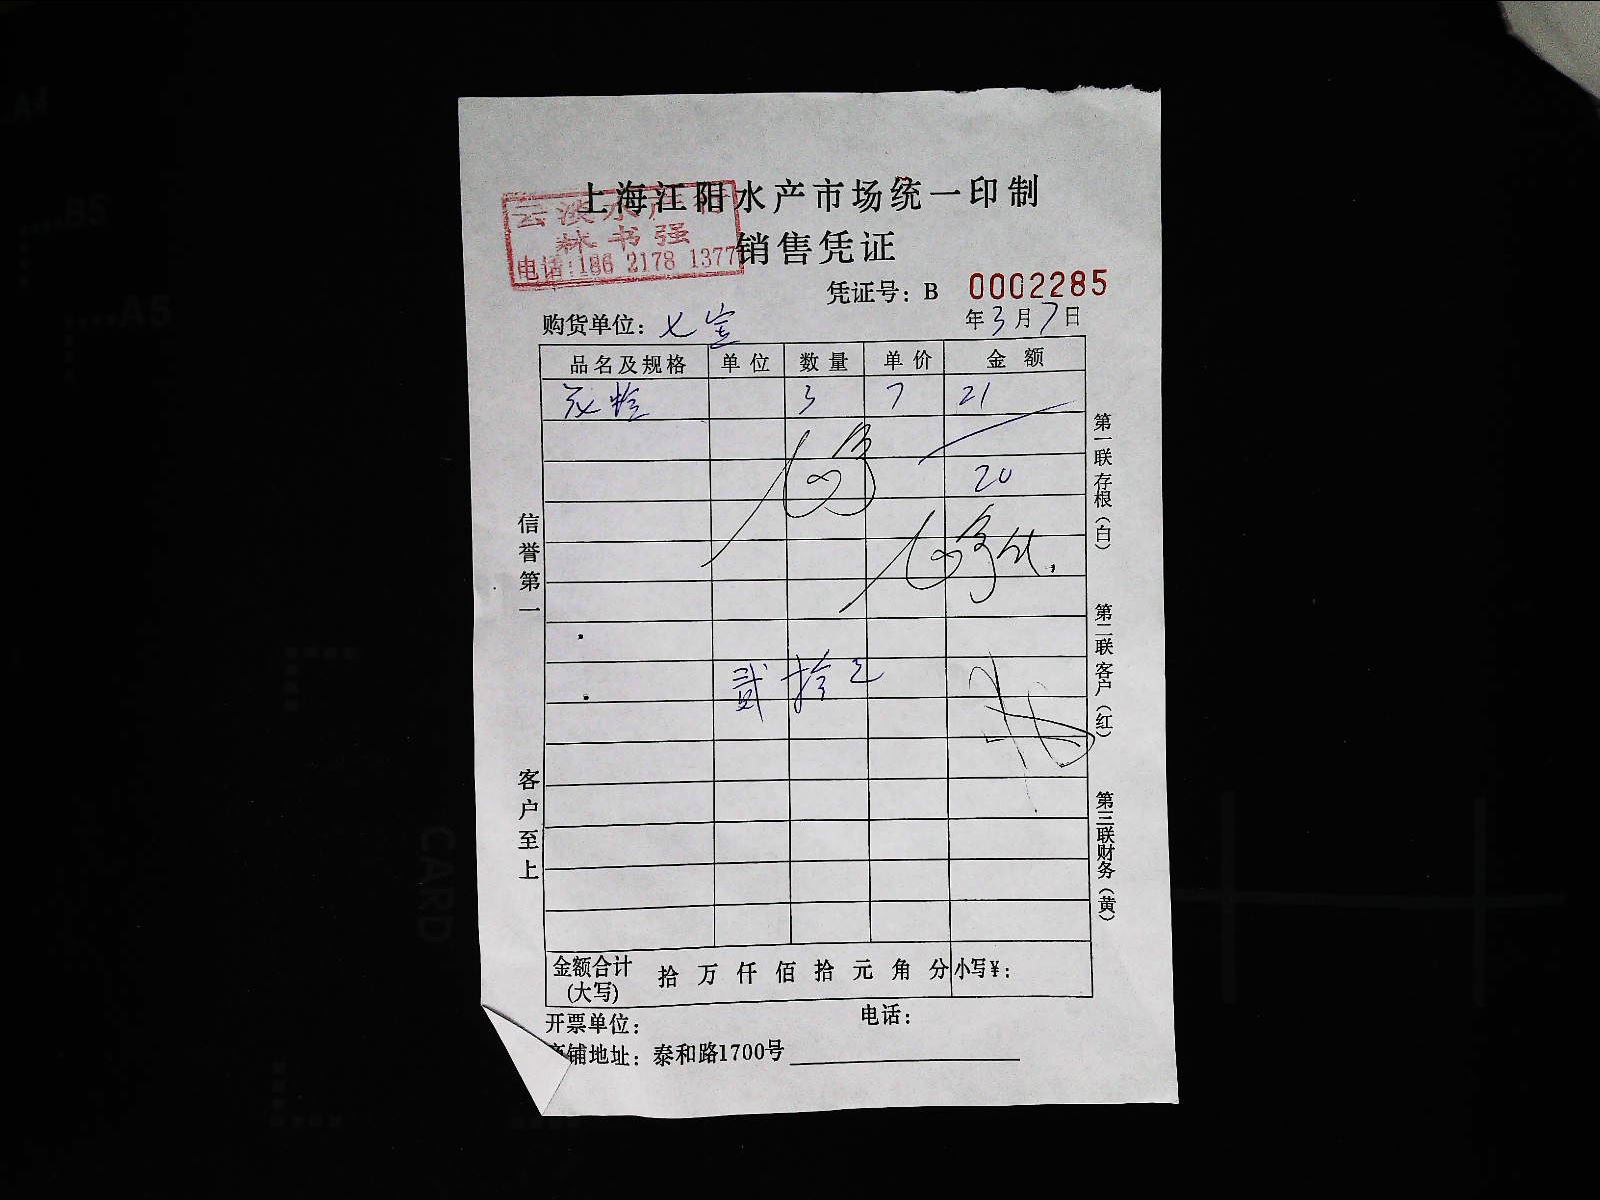 上海江阳水产市场统一印制
销售凭证
水产行
林书强
电话:186 2178 1377
凭证号：B 0002285
购货单位：七宝
年3月7日
品名及规格 单位 数量 单价 金额
花蛤 3 7 21
20
贰拾元
信誉第一
客户至上
第一联存根(白)
第二联客户(红)
第三联财务(黄)
金额合计(大写) 拾 万 仟 佰 拾 元 角 分 小写¥：
开票单位：
电话：
铺地址：泰和路1700号
A4
B5
A5
CARD